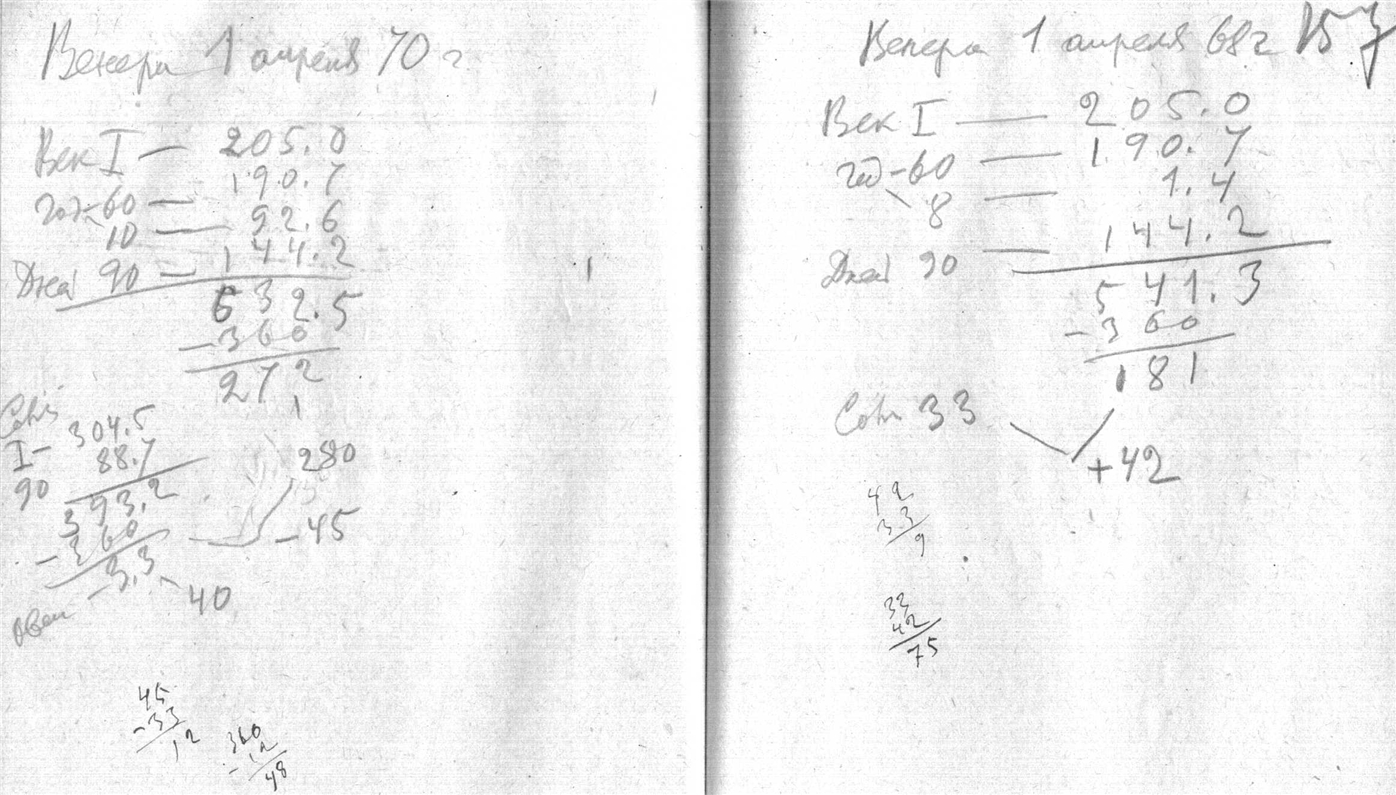 Венера 1 апреля 70 г
Век I — 205.0
год-60 — 190.7
10 — 92.6
Дней 90 — 144.2
632.5
-360
272
Солн
304.5
I-
88.7
90
393.2
-360
3,3
овен
-40
280
-45
45
-33
12
360
-12
48
Венера 1 апреля 68 г
Век I — 205.0
год-60 — 190.7
8 — 1.4
Дней 90 — 144.2
541.3
-360
181
Солн 33
+42
42
33
9
33
42
75